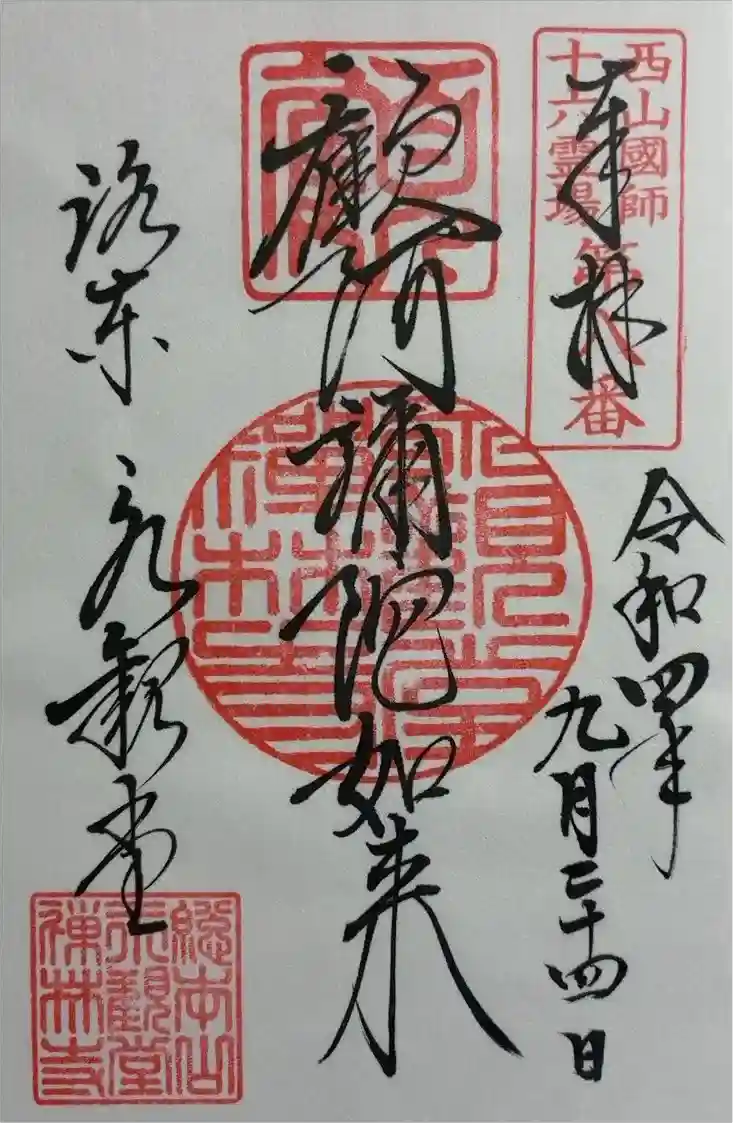 奉拝
西山國師
十六霊場
第八番
令和四年
九月二十四日
顧阿彌陀如来
永觀堂
禅林寺
洛东 永観堂
総本山
永觀堂
禅林寺